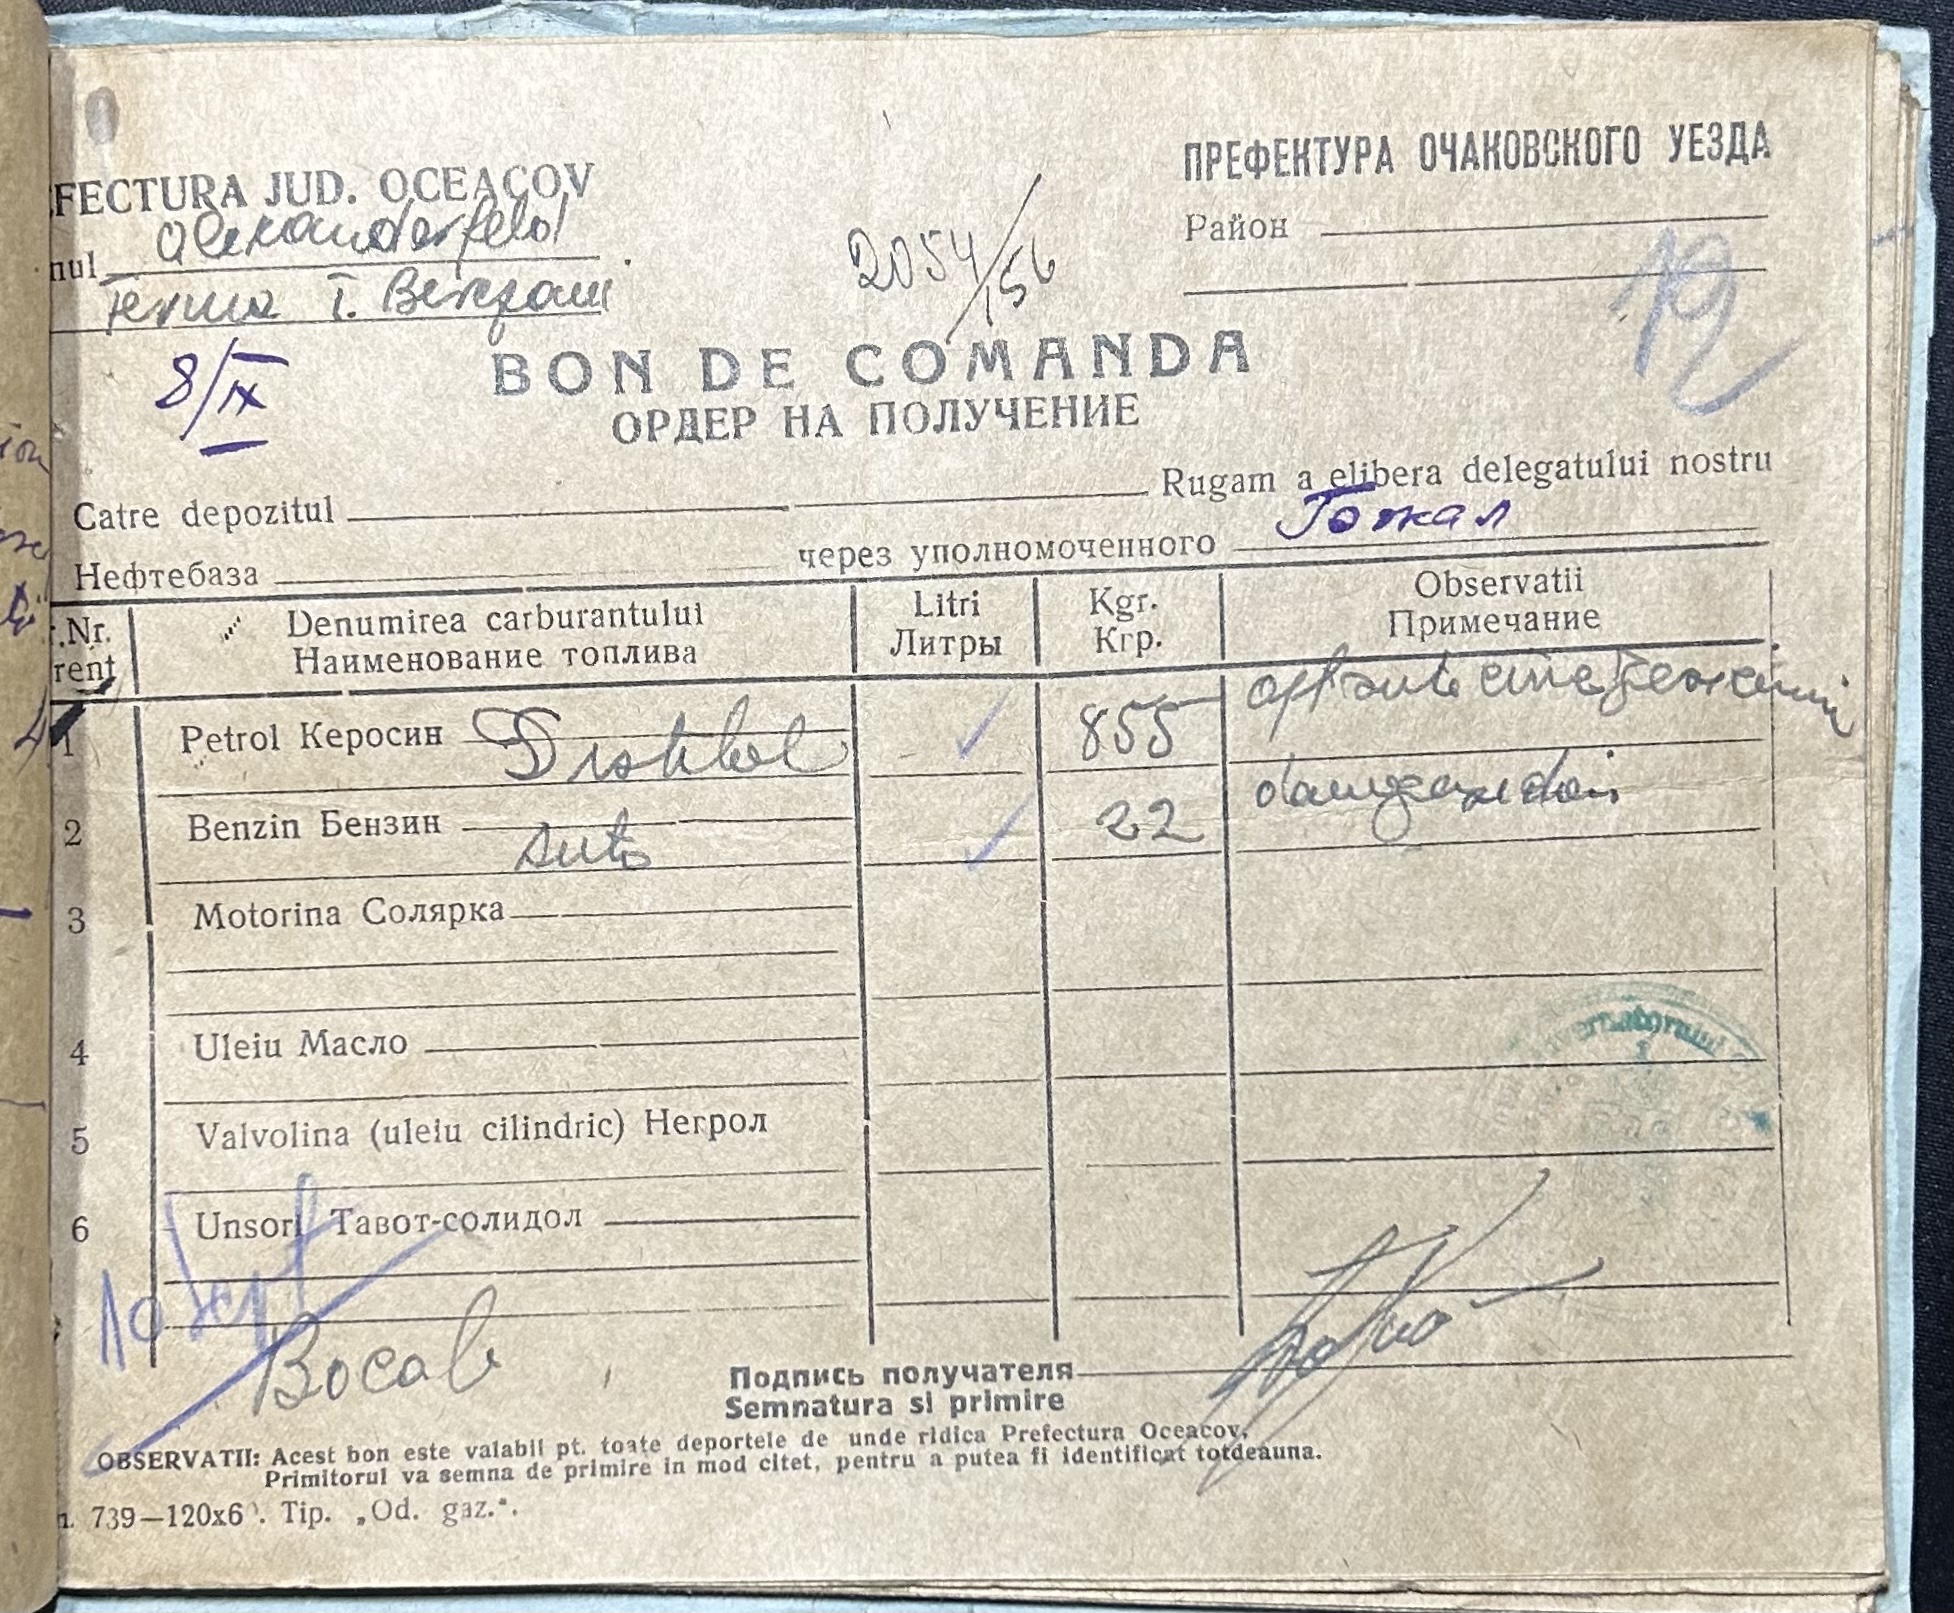 FECTURA JUD. OCEACOV
ПРЕФЕКТУРА ОЧАКОВСКОГО УЕЗДА
nul Alexanderfeld
Район
2054/156
12
Ferma I.
8/IX
BON DE COMANDA
ОРДЕР НА ПОЛУЧЕНИЕ
Catre depozitul Rugam a elibera delegatului nostru
Нефтебаза через уполномоченного Гожал
.Nr. Denumirea carburantului Litri Kgr. Observatii
rent Наименование топлива Литры Кгр. Примечание
1 Petrol Керосин 855 opt sute cincizeci cinci
2 Benzin Бензин auto 22 douazeci doi
3 Motorina Солярка
4 Uleiu Масло
5 Valvolina (uleiu cilindric) Негрол
6 Unsori Тавот-солидол
10 Sept
Подпись получателя
Semnatura si primire
OBSERVATII: Acest bon este valabil pt. toate deportele de unde ridica Prefectura Oceacov,
Primitorul va semna de primire in mod citet, pentru a putea fi identificat totdeauna.
739—120x6 . Tip. „Od. gaz.“.